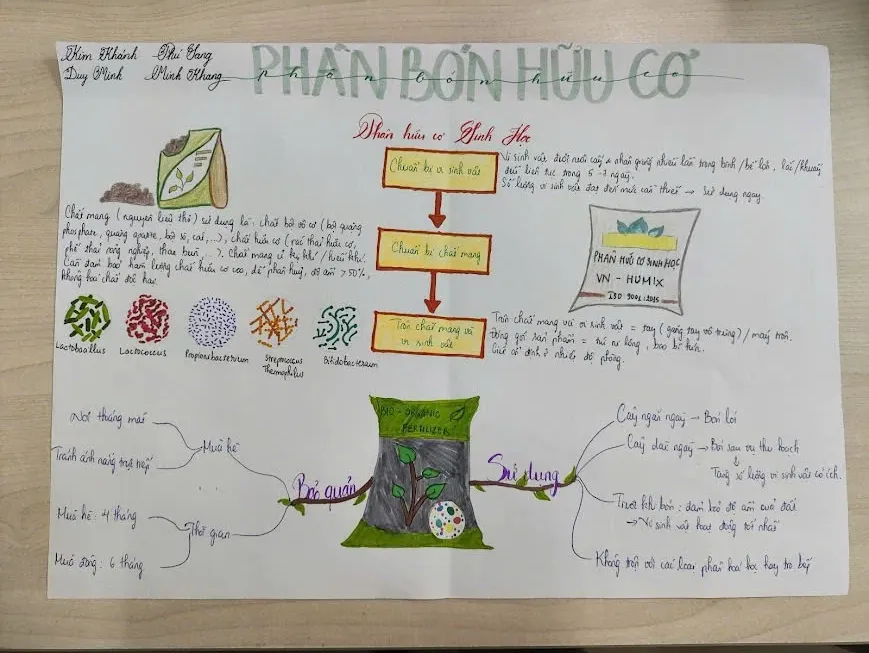 Kim Khánh Phú Sang
Duy Minh Minh Khang
PHÂN BÓN HỮU CƠ
phân bón hữu cơ
Phân hữu cơ Sinh Học
Chuẩn bị vi sinh vật
Vi sinh vật được nuôi cấy & nhân giống nhiều lần trong bình / bể lớn, lắc / khuấy
đều liên tục trong 5 - 7 ngày.
Số lượng vi sinh vật đạt đến mức cần thiết → sử dụng ngay
Chuẩn bị chất mang
Chất mang (nguyên liệu thô) sử dụng là: chất bột vô cơ (bột quặng
phosphate, quặng apatite, bột sò, cát,...), chất hữu cơ (rác thải hữu cơ,
phế thải nông nghiệp, than bùn,...). Chất mang ủ kỵ khí / hiếu khí.
Cần đảm bảo hàm lượng chất hữu cơ cao, dễ phân huỷ, độ ẩm > 50%,
không hoá chất độc hại.
PHÂN HỮU CƠ SINH HỌC
VN - HUMIX
ISO 9001:2015
Trộn chất mang và
vi sinh vật
Trộn chất mang và vi sinh vật = tay (găng tay vô trùng) / máy trộn.
Đóng gói sản phẩm = túi ni lông, bao bì kín.
Giữ ổn định ở nhiệt độ phòng.
Lactobacillus
Lactococcus
Propionibacterium
Streptococcus
Thermophilus
Bifidobacterium
BIO - ORGANIC
FERTILIZER
Bảo quản
Mùa hè
Nơi thoáng mát
Tránh ánh nắng trực tiếp
Thời gian
Mùa hè: 4 tháng
Mùa đông: 6 tháng
Sử dụng
Cây ngắn ngày → Bón lót
Cây dài ngày → Bón sau vụ thu hoạch
Tăng số lượng vi sinh vật có ích.
Trước khi bón: đảm bảo độ ẩm của đất
→ Vi sinh vật hoạt động tốt nhất
Không trộn với các loại phân hoá học hay tro bếp